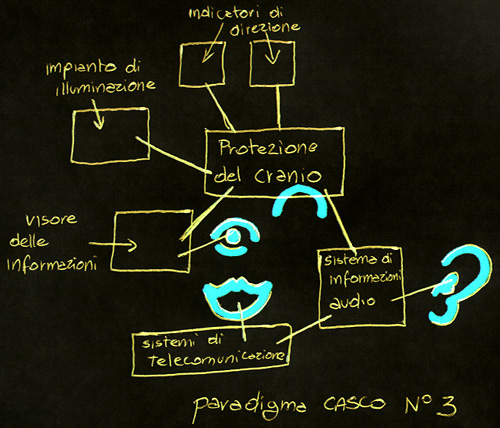 indicatori di
direzione
impianto di
illuminazione
Protezione
del cranio
visore
delle
informazioni
sistema di
informazioni
audio
sistemi di
telecomunicazione
paradigma CASCO N° 3